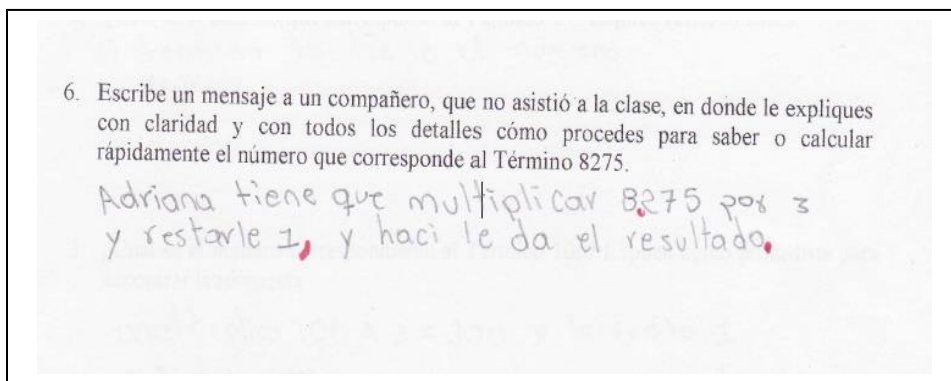 6. Escribe un mensaje a un compañero, que no asistió a la clase, en donde le expliques
con claridad y con todos los detalles cómo procedes para saber o calcular
rápidamente el número que corresponde al Término 8275.
Adriana tiene que multiplicar 8.275 por 3
y restarle 1, y haci le da el resultado.